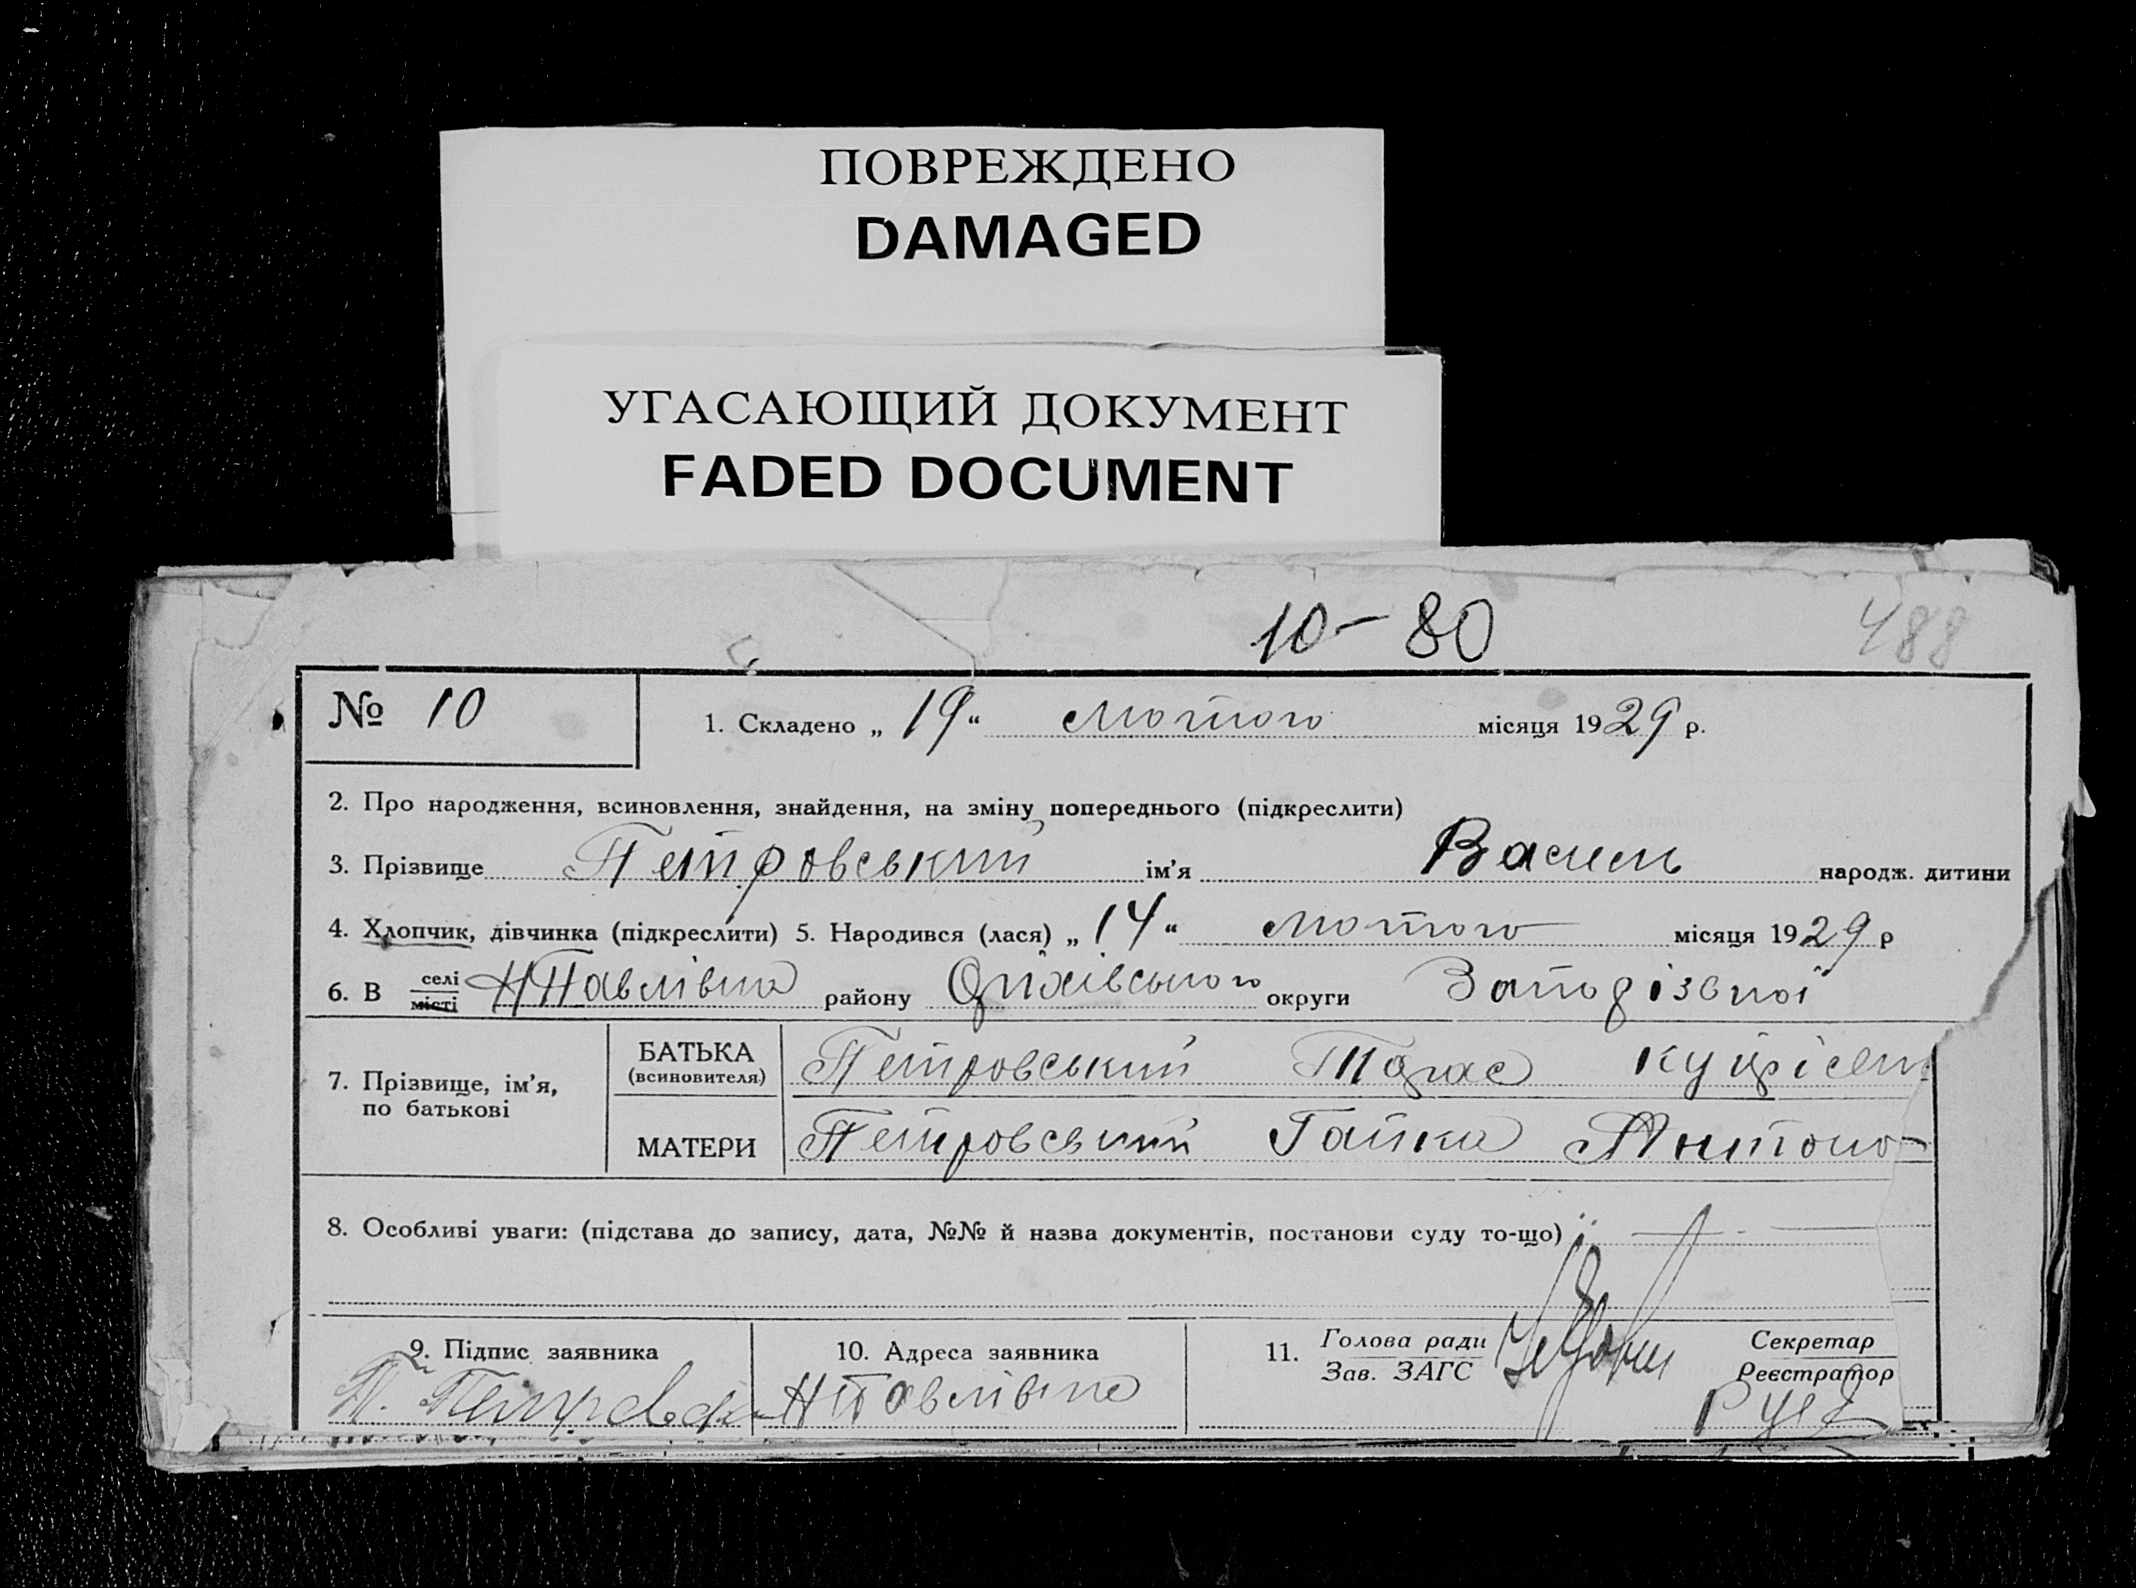 ПОВРЕЖДЕНО
DAMAGED
УГАСАЮЩИЙ ДОКУМЕНТ
FADED DOCUMENT
10-80 488
№ 10 1. Складено „ 19 “ Лютого місяця 1929 р.
2. Про народження, всиновлення, знайдення, на зміну попереднього (підкреслити)
3. Прізвище Петровський ім’я Василь народж. дитини
4. Хлопчик, дівчинка (підкреслити) 5. Народився (лася) „ 14 “ Лютого місяця 1929 р
6. В селі місті НПавлівка району Оріхівського округи Запорізської
7. Прізвище, ім’я, по батькові
БАТЬКА (всиновителя) Петровський Тарас
МАТЕРИ Петровський Ганна Антоно-
8. Особливі уваги: (підстава до запису, дата, №№ й назва документів, постанови суду то-що)
9. Підпис заявника 10. Адреса заявника 11. Голова ради Секретар
Зав. ЗАГС Реєстратор
Т. НПавлівка